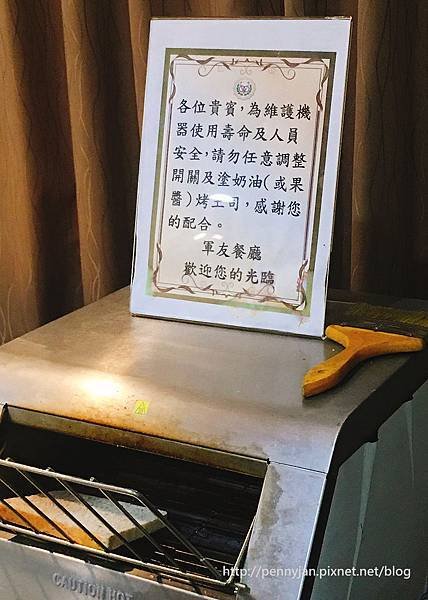 各位貴賓，為維護機
器使用壽命及人員
安全，請勿任意調整
開關及塗奶油(或果
醬)烤土司，感謝您
的配合。
軍友餐廳
歡迎您的光臨
CAUTION HOT
http://pennyjan.pixnet.net/blog